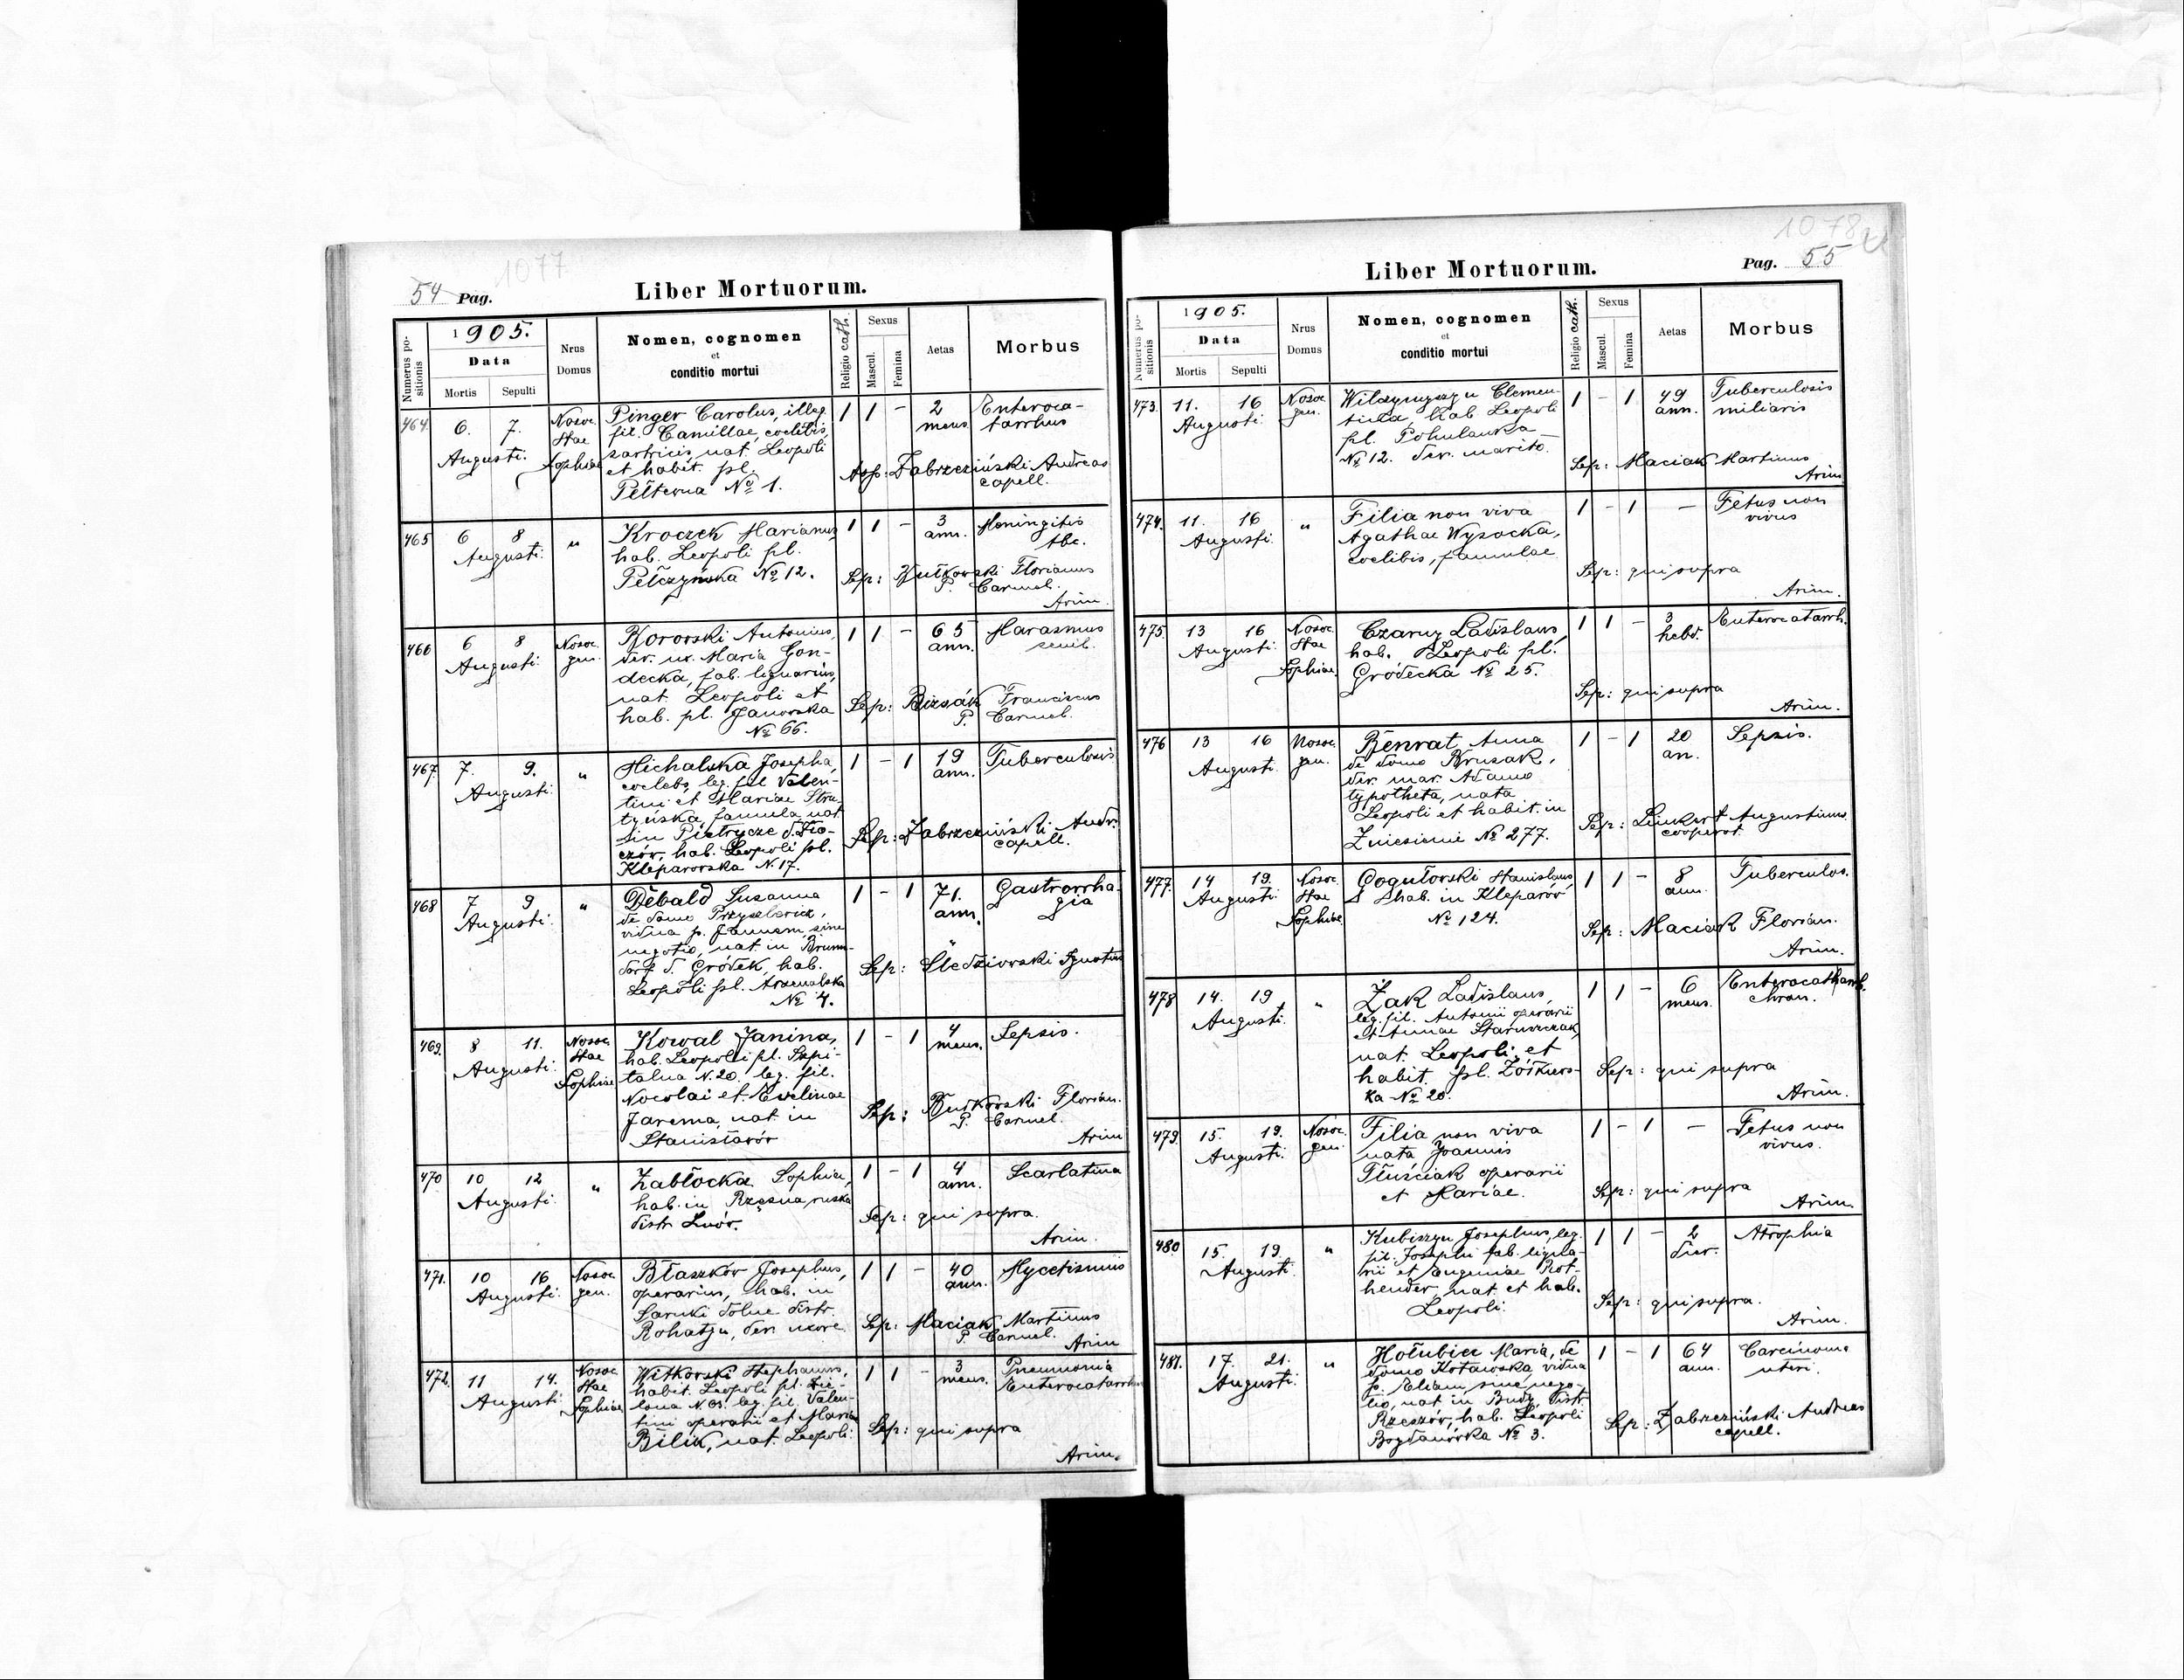 1077
54 Pag.
Liber Mortuorum.
Numerus positionis
1905.
Data
Mortis
Sepulti
Nrus
Domus
Nomen, cognomen
et
conditio mortui
Religio cath.
Sexus
Mascul.
Femina
Aetas
Morbus
464.
6. 7.
Augusti.
Nosoc.
Stae
Sophiae
Pinger Carolus, illeg.
fil. Camillae, coelibis,
sartricis, nat. Leopoli
et habit. pl.
Pełtewna No 1.
1 1 -
2
mens.
Enteroca-
tarrhus
Zabrzeziński Andreas
capell.
465
6 8
Augusti.
"
Kroczek Marianus,
hab. Leopoli pl.
Pełczyńska No 12.
1 1 -
3
ann.
Meningitis
tbc.
Sep: Florianus
P. Carmel.
Arim.
466
6 8
Augusti.
Nosoc.
gen.
Antonius,
der. ux. Maria Gon-
decka, fab. lignarius,
nat. Leopoli et
hab. pl. Janowska
No 66.
1 1 -
65
ann.
Marasmus
senil.
Sep: Bizsák Franciscus
P. Carmel.
467
7. 9.
Augusti.
"
Michalska Josepha,
coelebs, leg. fil. Valen-
tini et Mariae Stru-
tyńska, famula, nat.
in Pietrycze d. Zło-
czów, hab. Leopoli pl.
Kleparowska N. 17.
1 - 1
19
ann.
Tuberculosis
Sep: Zabrzeziński Andr.
capell.
468
7 9
Augusti.
"
Debald Susanna
de domo
vidua p. Joannem, sine
negotio, nat. in Brunn-
dorf d. Gródek, hab.
Leopoli pl. Arsenalska
No 4.
1 - 1
71.
ann.
Gastrorrha-
gia
Sep: Śledziowski Ignatius
469.
8 11.
Augusti.
Nosoc.
Stae
Sophiae
Kowal Janina,
hab. Leopoli pl. Szpi-
talna N. 20. leg. fil.
Nocolai et Evelinae
Jarema, nat. in
Stanisławów
1 - 1
4
mens.
Sepsis.
Sep: Florian.
P. Carmel.
Arim
470
10 12
Augusti.
"
Zabłocka Sophia,
hab. in Rzęsna ruska
distr. Lwów.
1 - 1
4
ann.
Scarlatina
Sep: qui supra.
Arim.
471.
10 16
Augusti.
Nosoc.
gen.
Błaszków Josephus,
operarius, hab. in
Sarnki dolne distr.
Rohatyn, der. uxore
1 1 -
40
ann.
Mycetismus
Sep: Maciak Martinus
P. Carmel.
Arim
472.
11 14.
Augusti.
Nosoc.
Stae
Sophiae
Witkowski Stephanus,
habit. Leopoli pl. Zie-
lona leg. fil. Valen-
tini operarii et Maria
Bilik, nat. Leopoli.
1 1 -
3
mens.
Pneumonia
Enterocatarrhus
Sep: qui supra
Arim.
1078
Liber Mortuorum.
Pag. 55
Numerus positionis
1905.
Data
Mortis
Sepulti
Nrus
Domus
Nomen, cognomen
et
conditio mortui
Religio cath.
Sexus
Mascul.
Femina
Aetas
Morbus
473.
11. 16
Augusti.
Nosoc.
gen.
Clemen-
tina, hab. Leopoli
pl. Pohulanka
No 12. der. marito.
1 - 1
49
ann.
Tuberculosis
miliaris
Sep: Maciak Martinus
Arim
474.
11. 16
Augusti.
"
Filia non viva
Agathae Wysocka,
coelibis, famulae
1 - 1
-
Fetus non
vivus
Sep: qui supra
Arim.
475.
13 16
Augusti.
Nosoc.
Stae
Sophiae
Czarny Ladislaus,
hab. Leopoli pl.
Gródecka No 25.
1 1 -
3
hebd.
Enterocatarrh.
Sep: qui supra
Arim.
476
13 16
Augusti.
Nosoc.
gen.
Benrat Anna
de domo Brusak,
der. mar. Adamo
typotheta, nata
Leopoli et habit. in
Zniesienie No 277.
1 - 1
20
an.
Sepsis.
Sep: Linkert Augustinus
cooperat.
477.
14 19.
Augusti.
Nosoc.
Stae
Sophiae
Stanislaus,
hab. in Kleparów
No 124.
1 1 -
8
ann.
Tuberculos.
Sep: Maciak Florian.
Arim.
478
14. 19
Augusti.
"
Żak Ladislaus,
leg. fil. Antonii operarii
et Annae
nat. Leopoli et
habit. pl. Żółkiews-
ka No 20.
1 1 -
6
mens.
Enterocatharrh.
chron.
Sep: qui supra
Arim.
479.
15. 19.
Augusti.
Nosoc.
gen.
Filia non viva
nata Joannis
Tłuściak operarii
et Mariae.
1 - 1
-
Fetus non
vivus.
Sep: qui supra
Arim.
480
15. 19.
Augusti.
"
Kubiszyn Josephus, leg.
fil. Josephi fab. ligna-
rii et Eugeniae Rot-
hender, nat. et hab.
Leopoli.
1 1 -
2
dier.
Atrophia
Sep: qui supra.
Arim.
481.
17. 21.
Augusti.
"
Hołubiec Maria, de
domo Kotawska, vidua
p. Eliam, sine nego-
tio, nat. in Budy distr.
Rzeszów, hab. Leopoli
Bogdanówka No 3.
1 - 1
64
ann.
Carcinoma
uteri.
Sep: Zabrzeziński Andreas
capell.